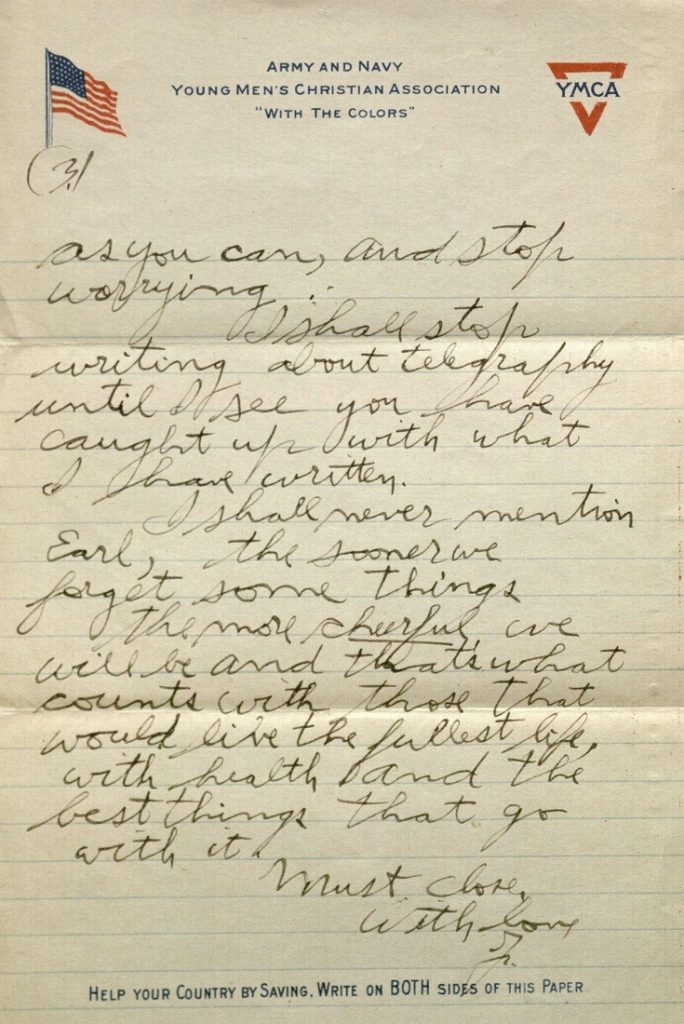 ARMY AND NAVY
YOUNG MEN'S CHRISTIAN ASSOCIATION
"WITH THE COLORS"
YMCA
(3)
as you can, and stop
worrying.
I shall stop
writing about telegraphy
until I see you have
caught up with what
I have written.
I shall never mention
Earl, the sooner we
forget some things
the more cheerful we
will be and thats what
counts with those that
would live the fullest life,
with health and the
best things that go
with it.
Must close,
With love
HELP YOUR COUNTRY BY SAVING. WRITE ON BOTH SIDES OF THIS PAPER